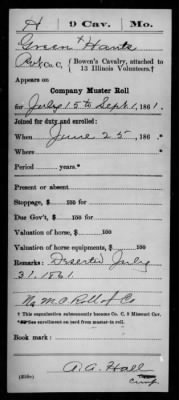 H | 9 Cav. | Mo.
Green + Hants
Pvt. Co. C, { Bowen's Cavalry, attached to
13 Illinois Volunteers.†
Appears on
Company Muster Roll
for July 15 to Sept 1, 1861.
Joined for duty and enrolled:
When June 25, 186 .*
Where *
Period years.*
Present or absent
Stoppage, $ 100 for
Due Gov't, $ 100 for
Valuation of horse, $ 100
Valuation of horse equipments, $ 100
Remarks: Deserted July
31. 1861.
No M O Roll of Co
† This organization subsequently became Co. C, 9 Missouri Cav.
*See enrollment on card from muster-in roll.
Book mark:
A. A. Hall
Copyist.